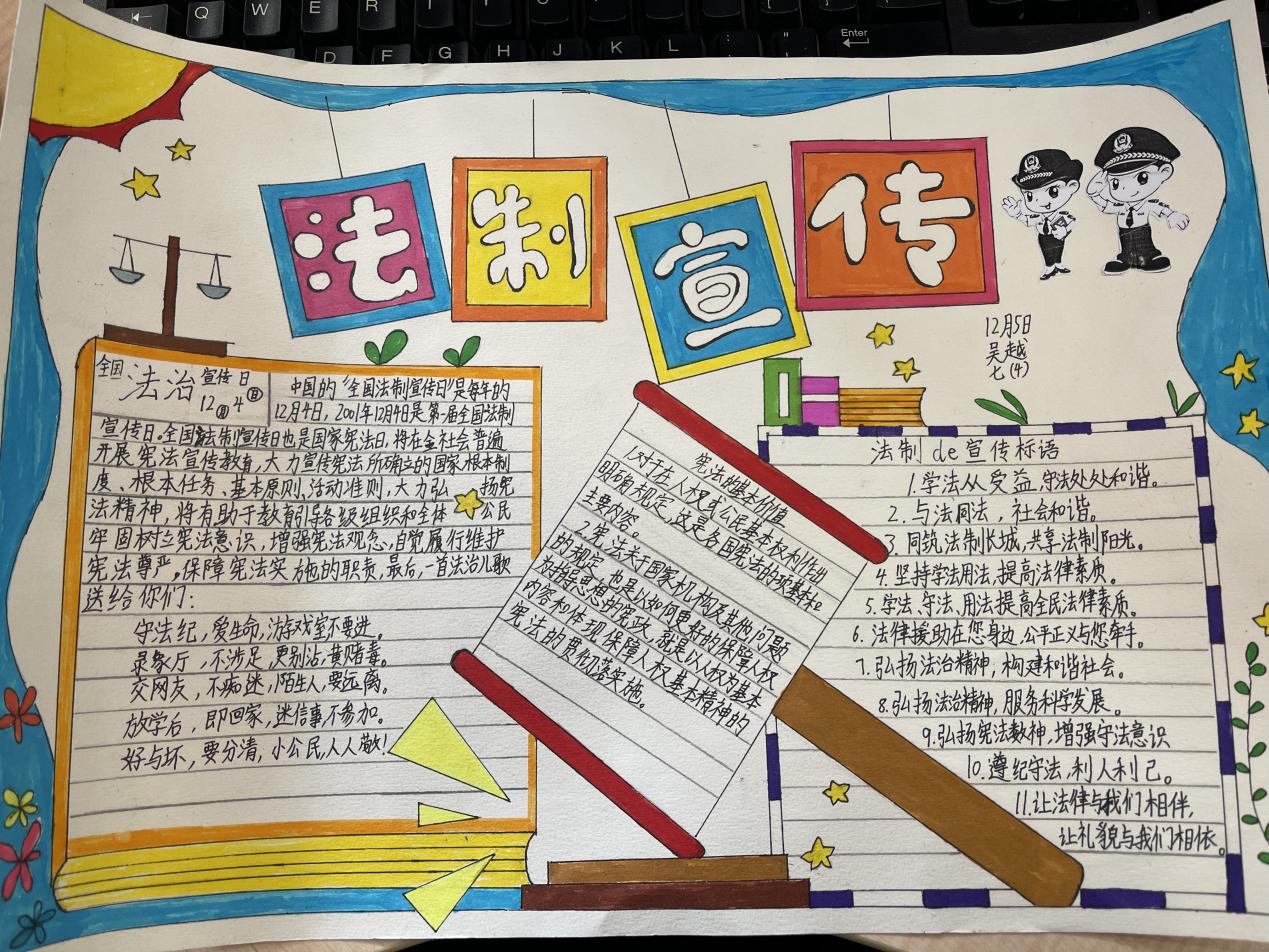 Q W E R T Y U I O P
Enter
D F G H J K L
法制宣传
12月5日
吴越
七(4)
全国法治宣传日
12月4日
中国的“全国法制宣传日”是每年的
12月4日,2001年12月4日是第一届全国法制
宣传日。全国法制宣传日也是国家宪法日,将在全社会普遍
开展宪法宣传教育,大力宣传宪法所确立的国家根本制
度、根本任务、基本原则、活动准则,大力弘扬宪
法精神,将有助于教育引导各级组织和全体公民
牢固树立宪法意识,增强宪法观念,自觉履行维护
宪法尊严。保障宪法实施的职责,最后,一首法治儿歌
送给你们:
守法纪,爱生命,游戏室不要进。
录象厅,不涉足,更别沾,黄赌毒。
交网友,不痴迷,陌生人,要远离。
放学后,即回家,迷信事不参加。
好与坏,要分清,小公民人人敬!
宪法的基本价值
1.对于在人权或公民基本权利作出
明确规定,这是各国宪法的项基本和
主要内容。
2.宪法关于国家机构及其他问题
的规定,也是以如何更好的保障人权
为指导思想的宪政,就是以人权为基本
内容和体现保障人权基本精神的
宪法的贯彻落实施。
法制de宣传标语
1.学法从受益,守法处处和谐。
2.与法同法,社会和谐。
3.同筑法制长城,共享法制阳光。
4.坚持学法用法,提高法律素质。
5.学法、守法、用法提高全民法律素质。
6.法律援助在您身边,公平正义与您牵手。
7.弘扬法治精神,构建和谐社会。
8.弘扬法治精神,服务科学发展。
9.弘扬宪法精神,增强守法意识
10.遵纪守法,利人利己。
11.让法律与我们相伴,
让礼貌与我们相依。